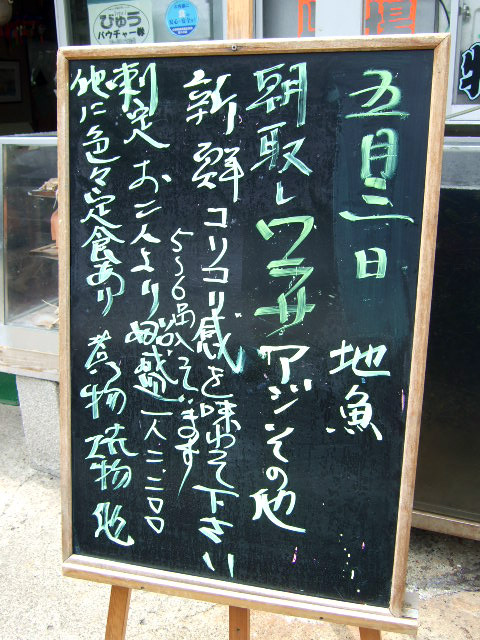 五月三日 地魚
朝取し ワラサ アジ その他
新鮮 コリコリ感を味わって下さい
5〜6品入っています
刺定 お二人より 舟盛 一人二二〇〇
他に色々定食あり 煮物 焼物 他
びゅう
バウチャー券
場